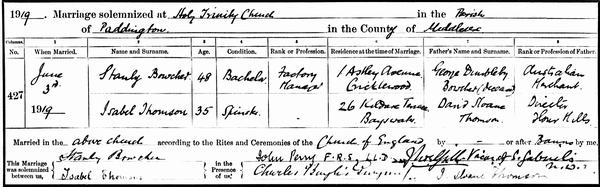 1919. Marriage solemnized at Holy Trinity Church in the Parish
of Paddington in the County of Middlesex
Columns. 1 2 3 4 5 6 7 8
No. When Married. Name and Surname. Age. Condition. Rank or Profession. Residence at the time of Marriage. Father's Name and Surname. Rank or Profession of Father.
427
June 3rd 1919
Stanly Bowcher 48 Bachelor Factory Manager 1 Astley Avenue, Cricklewood George Bowcher (deceased) Australian Merchant.
Isabel Thomson 35 Spinster 26 Kildare Terrace Bayswater David Sloane Thomson. Director Flour Mills.
Married in the above church according to the Rites and Ceremonies of the Church of England by — or after Banns by me,
This Marriage was solemnized between us, Stanly Bowcher Isabel Thomson
in the Presence of us, John Perry F.R.S; LL.D Vicar of S. Gabriel's
Charles J. Sloane Thomson